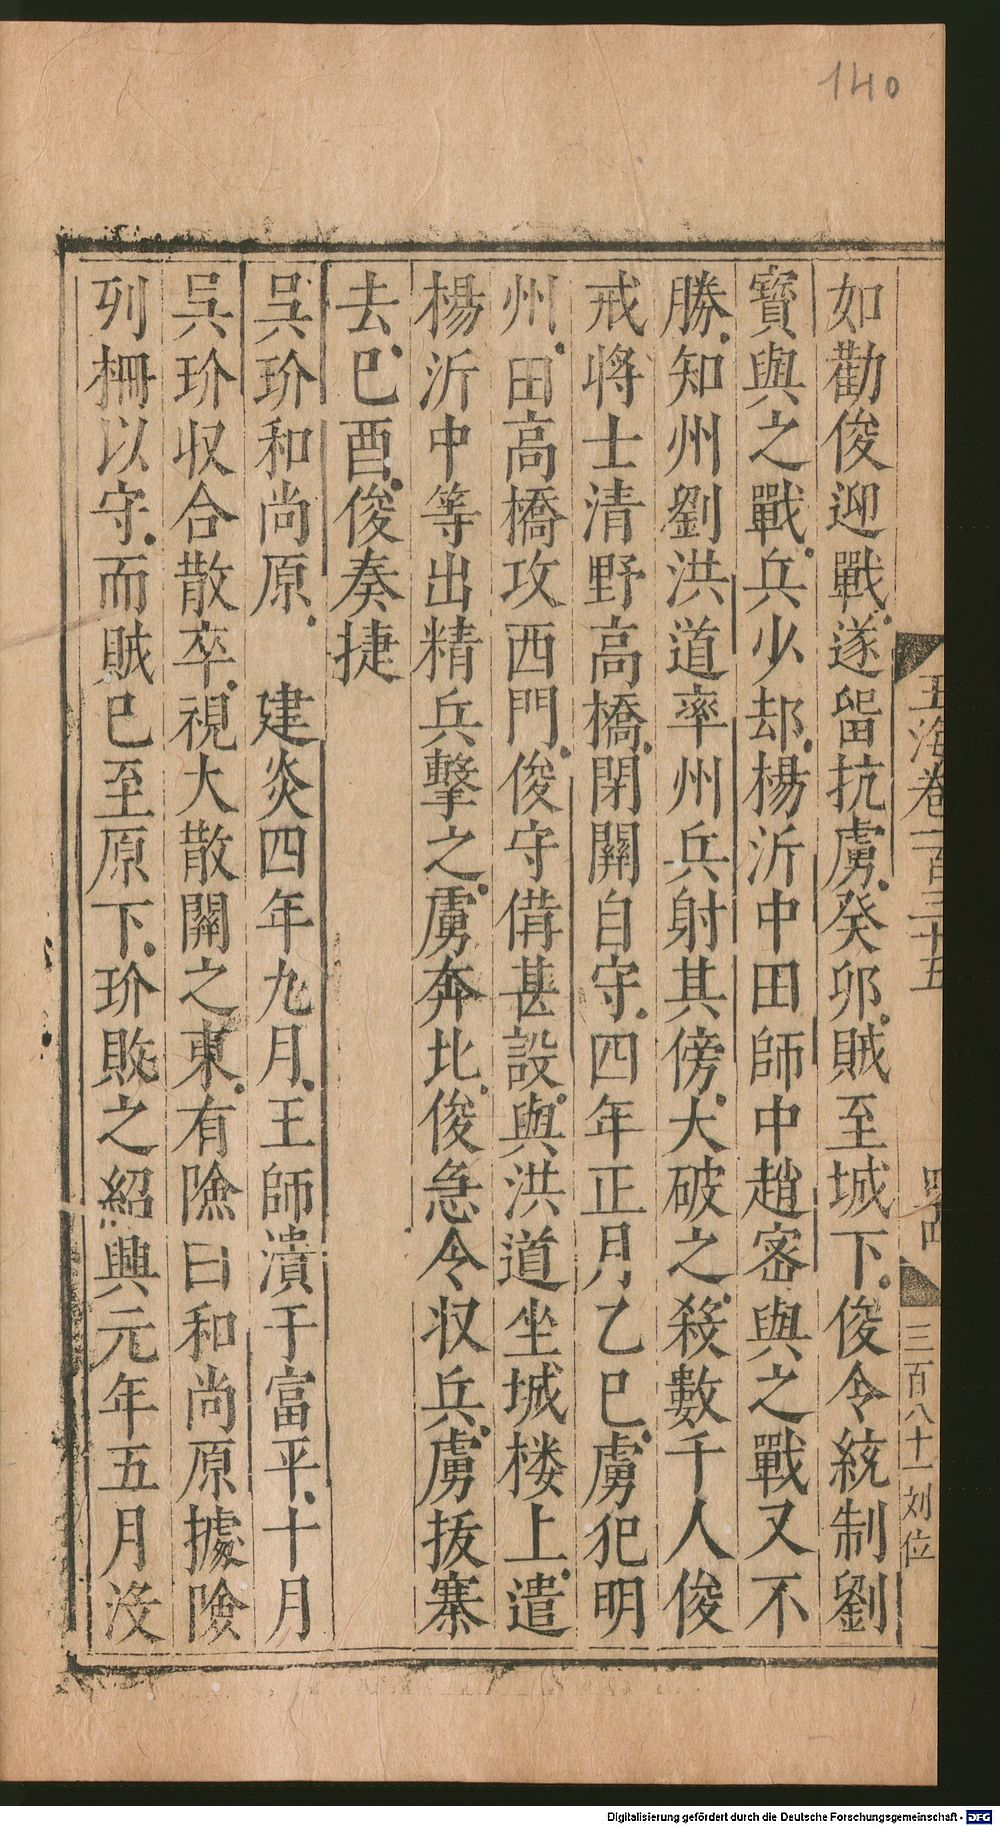 140
玉海卷一百三十五
三百八十一刘位
如勸俊迎戰遂畱抗虜癸卯賊至城下俊令統制劉
寳與之戰兵少却楊沂中田師中趙宻與之戰又不
勝知州劉洪道率州兵射其傍大破之殺數千人俊
戒將士清野高橋閉關自守四年正月乙巳虜犯明
州田高橋攻西門俊守備甚設與洪道坐城楼上遣
楊沂中等出精兵擊之虜奔北俊急令収兵虜拔寨
去已酉俊奏捷
吳玠和尚原　建炎四年九月王師潰于富平十月
吳玠収合散卒視大散關之東有險曰和尚原據險
列柵以守而賊已至原下玠敗之紹興元年五月没
Digitalisierung gefördert durch die Deutsche Forschungsgemeinschaft - DFG